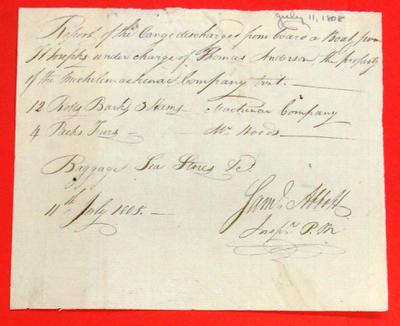 July 11, 1808
Report of the Cargo discharged from board a Boat from
St Josephs under charge of Thomas Anderson the property
of the Michilimackinac Company viz.
12 Rolls Bark, 3 Stems — Mackinac Company
4 Packs Furs — Mr. Woods —
Baggage, Sea Stores &c.
11th July 1808. —
Saml. Abbott
Inspr. P. M